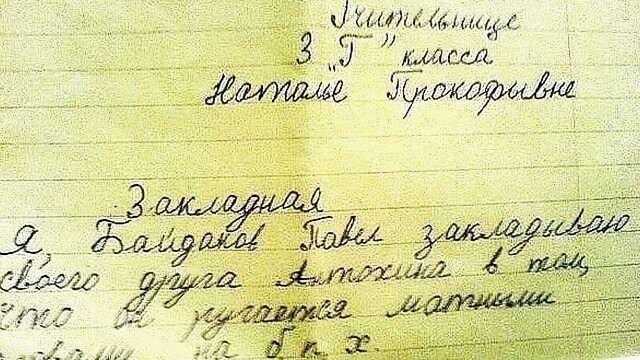 Учительнице
3 „Г” класса
Наталье Прокофывне
Закладная
Я, Байдаков Павел закладываю
своего друга Алтохина в том,
что он ругается матными
словами на б п х.